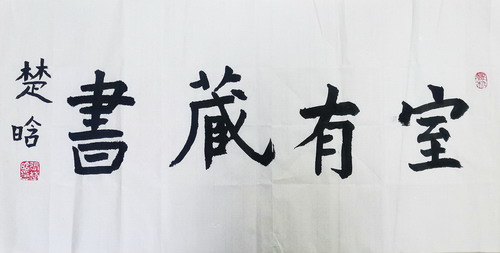 室有藏書
楚晗